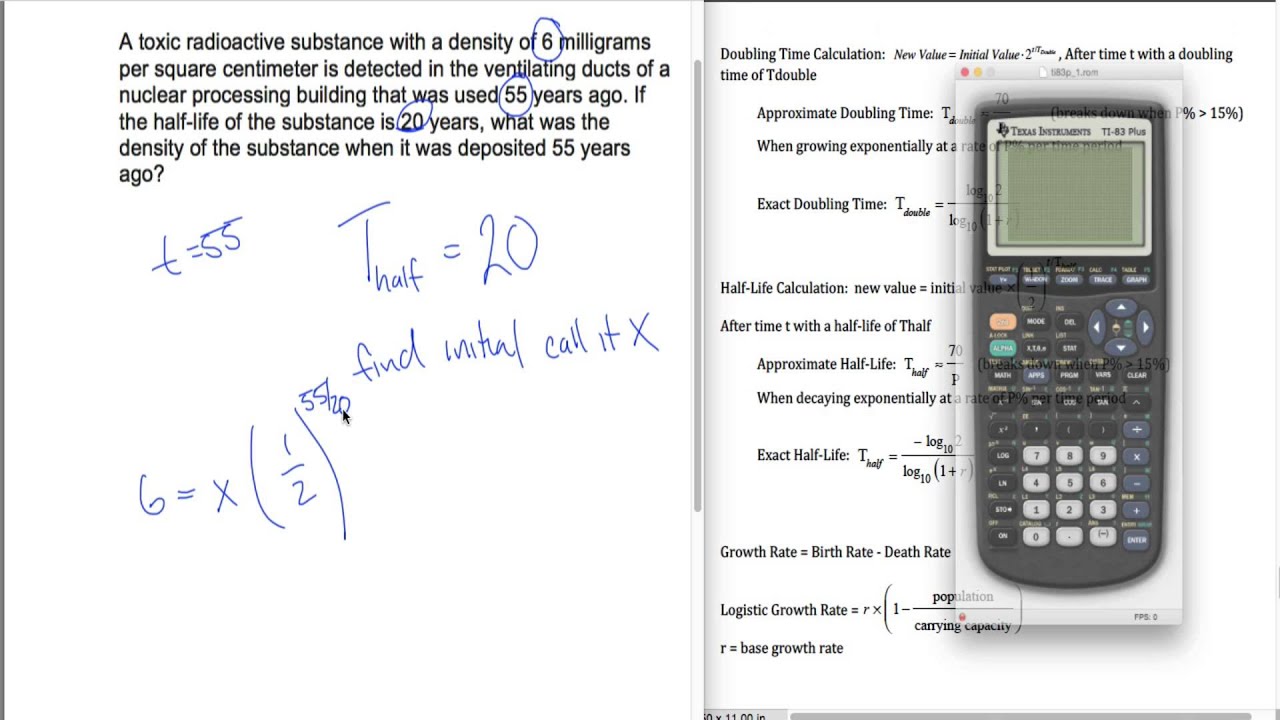 A toxic radioactive substance with a density of 6 milligrams
per square centimeter is detected in the ventilating ducts of a
nuclear processing building that was used 55 years ago. If
the half-life of the substance is 20 years, what was the
density of the substance when it was deposited 55 years
ago?
t=55
T half = 20
find initial call it X
6 = x (1/2)^55/20
Doubling Time Calculation: New Value = Initial Value·2^t/TDouble, After time t with a doubling
time of Tdouble
Approximate Doubling Time: Tdouble ≈ 70 (breaks down when P% > 15%)
When growing exponentially at a rate of P% per time period
Exact Doubling Time: Tdouble = log10 2 / log10(1+r)
Half-Life Calculation: new value = initial value × (1/2)^t/THalf
After time t with a half-life of Thalf
Approximate Half-Life: Thalf ≈ 70/P (breaks down when P% > 15%)
When decaying exponentially at a rate of P% per time period
Exact Half-Life: Thalf = −log10 2 / log10(1+r)
Growth Rate = Birth Rate - Death Rate
Logistic Growth Rate = r × (1 − population / carrying capacity)
r = base growth rate
50 x 11.00 in
ti83p_1.rom
TEXAS INSTRUMENTS TI-83 Plus
STAT PLOT F1 TBL SET F2 FORMAT F3 CALC F4 TABLE F5
Y= WINDOW ZOOM TRACE GRAPH
2nd MODE DEL
ALPHA X,T,θ,n STAT
MATH APPS PRGM VARS CLEAR
SIN COS TAN ^
x² , ( ) ÷
LOG 7 8 9 ×
LN 4 5 6 −
STO 1 2 3 +
ON 0 . (−) ENTER
FPS: 0